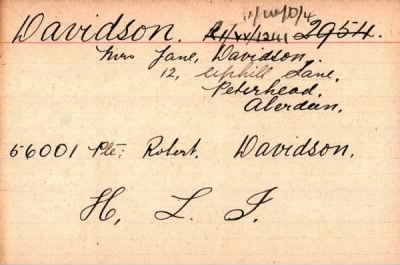 Davidson. 2954.
Mrs Jane, Davidson.
12, Uphill Lane,
Peterhead,
Aberdeen.
56001 Pte; Robert. Davidson.
H. L. I.